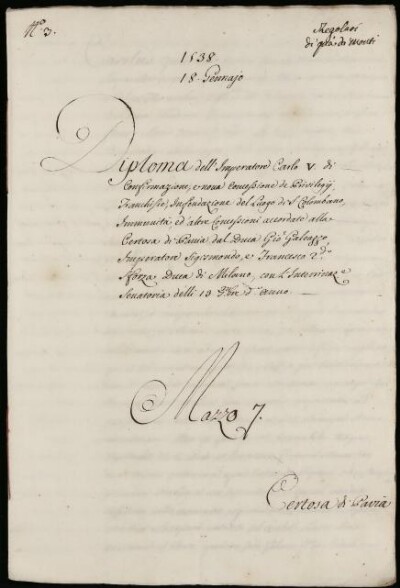 N.º 3.
Regolari
1538
18. Gennajo
Diploma dell'Imperatore Carlo V. di
Confirmazione, e nova Concessione de Privilegj,
Franchisie, Infeudazione del Luogo di S. Colombano,
Immunità, ed altre Concessioni accordate alla
Certosa di Pavia dal Duca Gio Galeazzo,
Imperatore Sigismondo, e Francesco 2.do
Sforza Duca di Milano, con l'Interinaz.e
Senatoria delli 19 d.o anno
Mazzo 7.
Certosa di Pavia